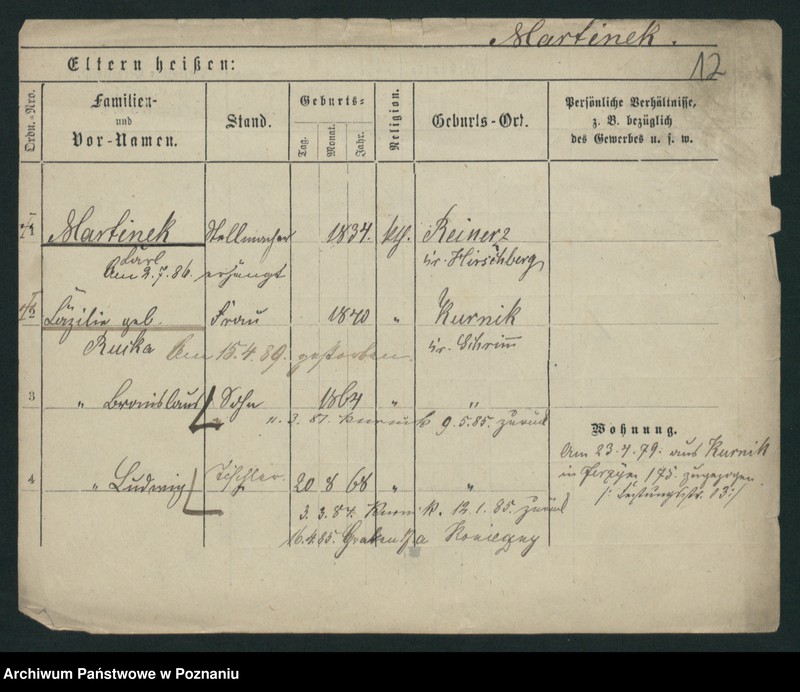 Martinek.
12
Eltern heißen:
Ordn.-Nro. Familien- und Vor-Namen. Stand. Geburts- Tag. Monat. Jahr. Religion. Geburts-Ort. Persönliche Verhältnisse, z. B. bezüglich des Gewerbes u. s. w.
1 Martinek Stellmacher 1834. kth. Reinerz
Carl Kr. Hirschberg
Am 2.7.86. erhängt
2 Cäzilie geb. Frau 1840 " Kurnik
Ruska Am 15.4.89. gestorben. Kr. Schrimm
3 " Bronislaus Sohn 1864 " "
3. 81. Kurnik 9.5.85. zurück
Wohnung.
Am 23.4.79. aus Kurnik
in 175. zugezogen
4 " Ludwig Tischler. 20 8 68 " "
3. 3. 84. Kurnik. 12.1.85. zurück
16.4.85. Graben
Archiwum Państwowe w Poznaniu